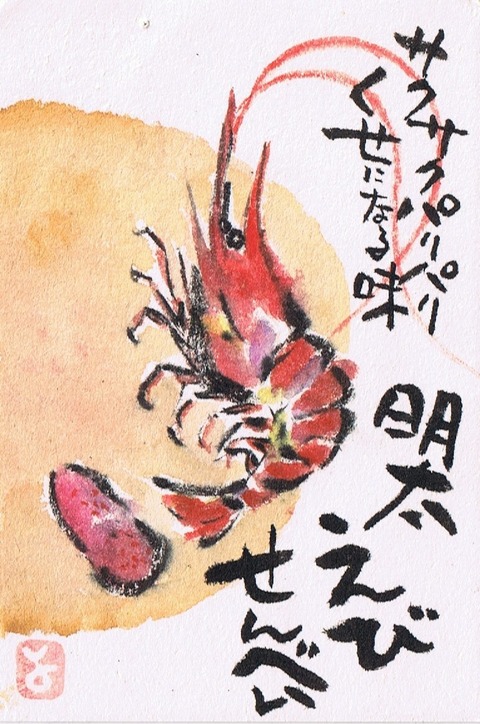 サクサクパリパリ
くせになる味
明太
えび
せんべい